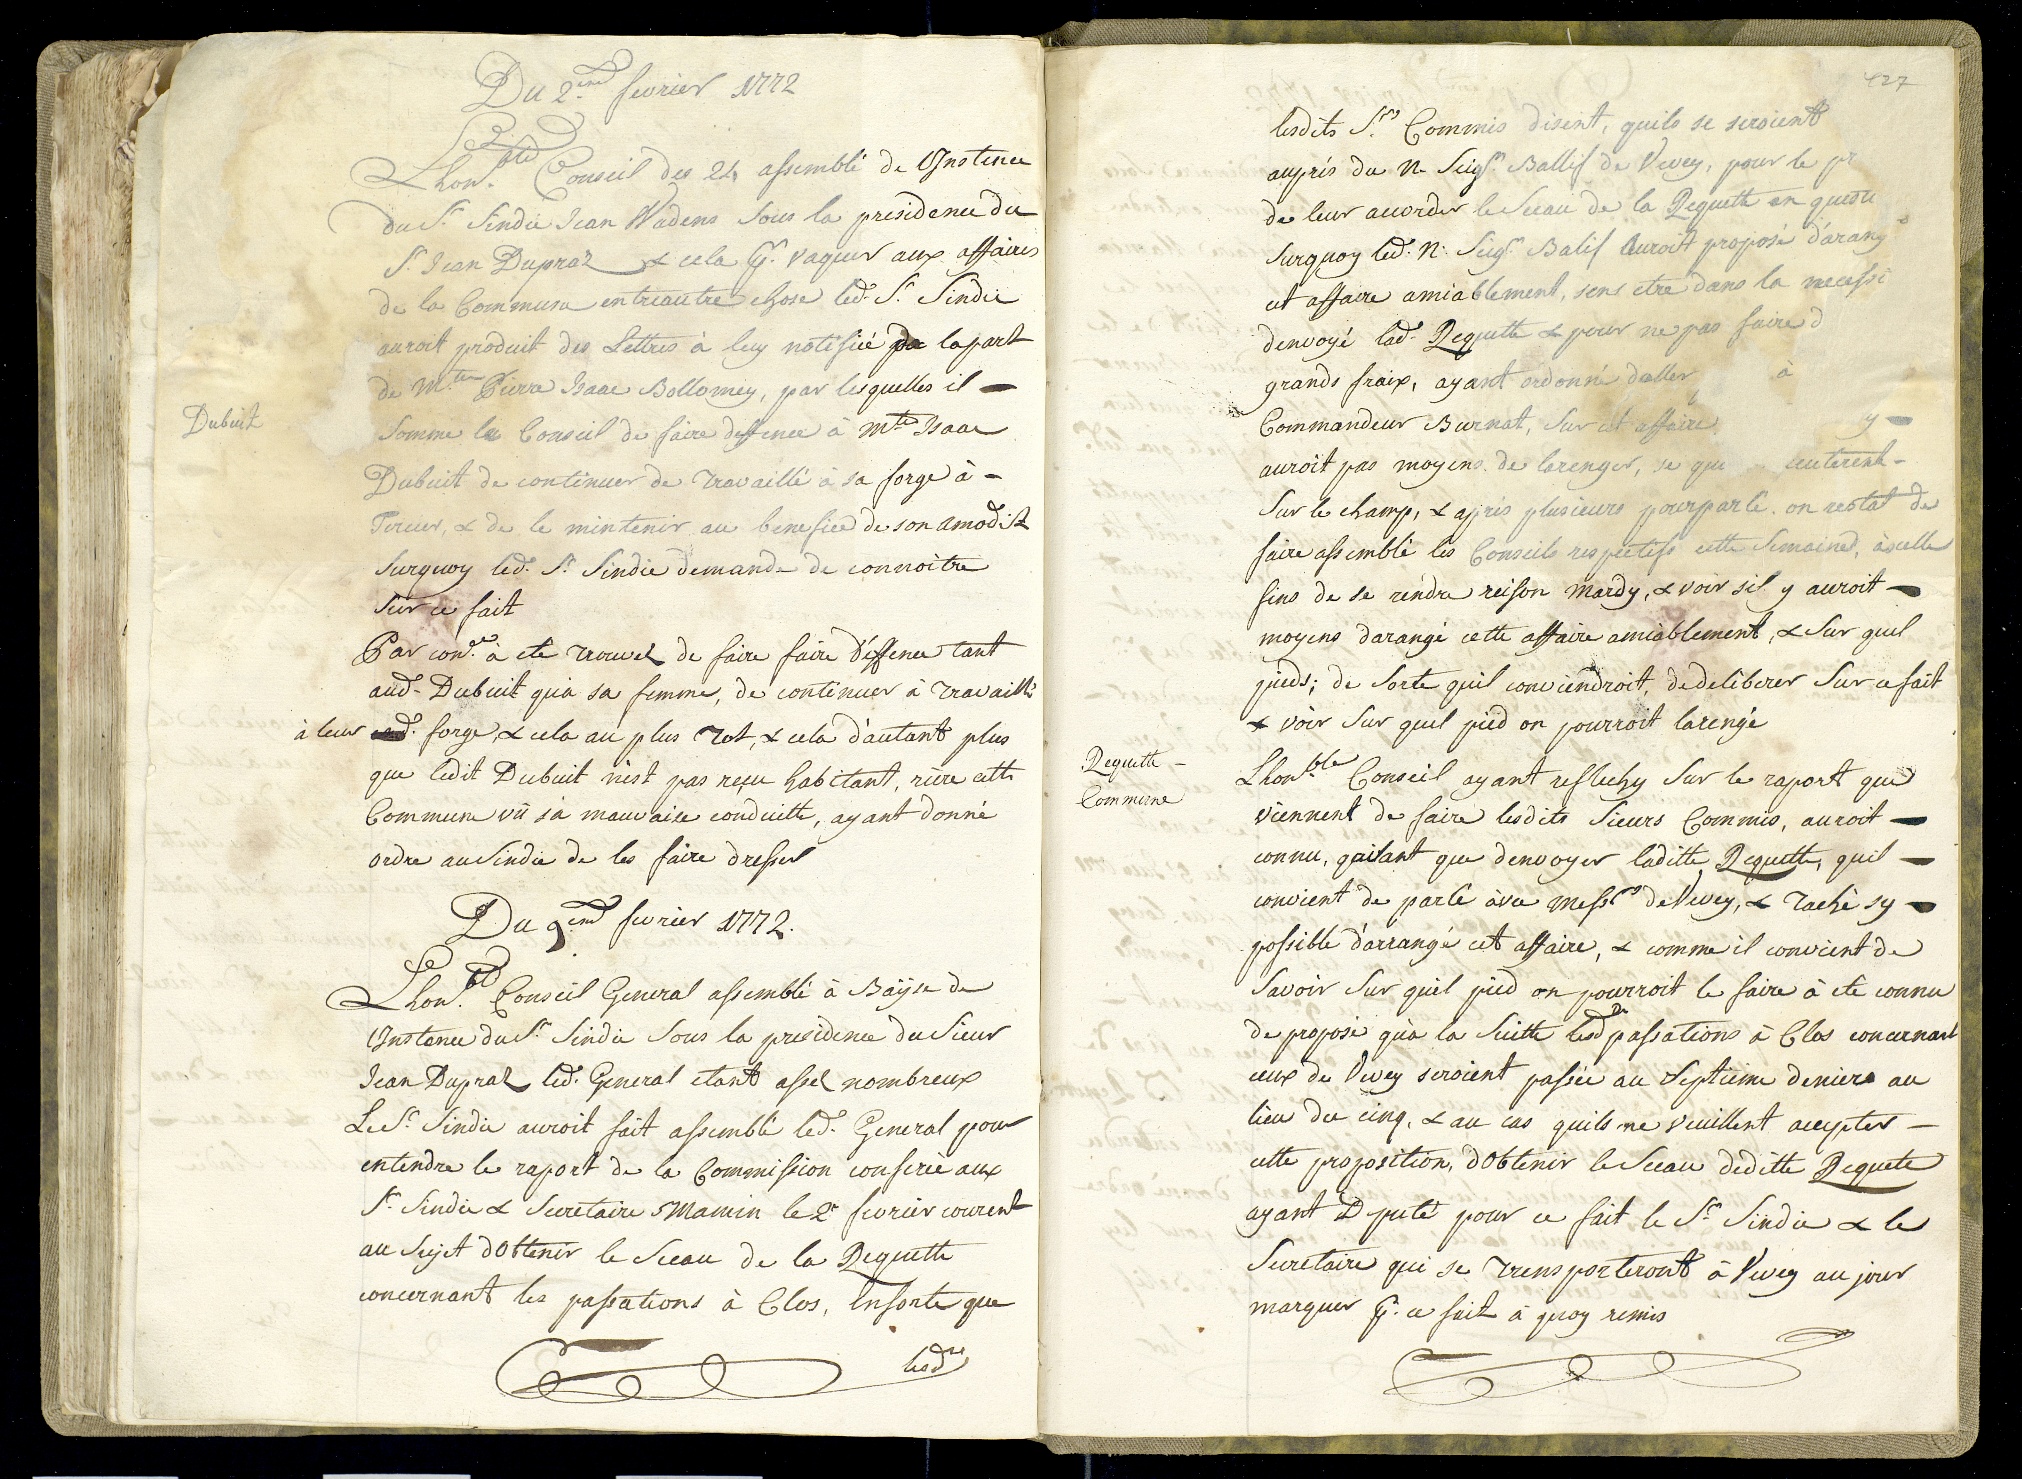 Du 2.eme fevrier 1772
Lhon.ble Conseil des 24 assemblé de l'Instence
du S.r Sindic Jean Wadens sous la presidence du
S.r Jean Dupraz & cela p.r vaquer aux affaires
de la Commune entreautre chose led. S.r Sindic
auroit produit des Lettres à luy notifiée de la part
de M.tre Pierre Isaac Bollomey, par lesquelles il -
Dubuit
somme le Conseil de faire deffence à M.tre Isaac
Dubuit de continuer de travaillé à sa forge à -
& de le mintenir au benefice de son amodi
surquoy led. S.r Sindic demande de connoitre
sur ce fait
Par con.ce à été trouvez de faire faire déffence tant
aud. Dubuit qu'a sa femme, de continuer à travaillé
à leur forge, & cela au plus tot, & cela d'autant plus
que ledit Dubuit n'est pas reçu habitant, riere cette
Commune vû sa mauvaise conduitte, ayant donné
ordre au Sindic de les faire dresser
Du 9.eme fevrier 1772.
Lhon.ble Conseil General assemblé à Baÿse de
l'Instence du S.r Sindic sous la presidence du Sieur
Jean Dupraz led. General etant assez nombreux
Le S.r Sindic auroit fait assemblé led. General pour
entendre le raport de la Commission conferée aux
S.rs Sindic & Secretaire Mamin le 2.e fevrier courent
au sujet d'obtenir le Sceau de la Requette
concernant les passations à Clos, ensorte que
lesd.ts
427
lesdits S.rs Commis disent, quils se seroient
auprés du N. Seig.r Ballif de Vevey, pour le pr
de leur accorder le Sceau de la Requette enques
surquoy led. N. Seig.r Balif auroit proposé d'arang
cet affaire amiablement, sens etre dans la necessi
denvoyé lad. Requette & pour ne pas faire d
grands fraix, ayant ordonné daller à
Commandeur Burnat, sur cet affaire y -
auroit pas moyens de larenger, se qui -
sur le champ, & aprés plusieurs pourparlé. on restat de
faire assemblé les Conseils respectifs cette Semaine, àcelle
fins de se rendre reison mardy, & voir sil y auroit -
moyens darangé cette affaire amiablement, & sur quel
pieds; de sorte quil conviendroit, dedeliberer sur ce fait
& voir sur quel pied on pourroit larengé
Requette -
Commune
Lhon.ble Conseil ayant reflechy sur le raport que
viennent de faire lesdits Sieurs Commis, auroit -
connu, quavant que denvoyer laditte Requette, quil -
convient de parlé àvec Mess.rs de Vevey, & taché sy -
possible d'arrangé cet affaire, & comme il convient de
savoir sur quel pied on pourroit le faire à été connu
de proposé qu'a la suitte lesd.tes passations à Clos concernant
ceux de Vevey seroient passée au septieme denier au
lieu du cinq, & au cas quils ne veuillent accepter -
cette proposition, d'obtenir le Sceau deditte Requete
ayant Député pour ce fait le S.r Sindic & le
Secretaire qui se transporteront à Vevey au jour
marquer p.r ce fait à quoy remis